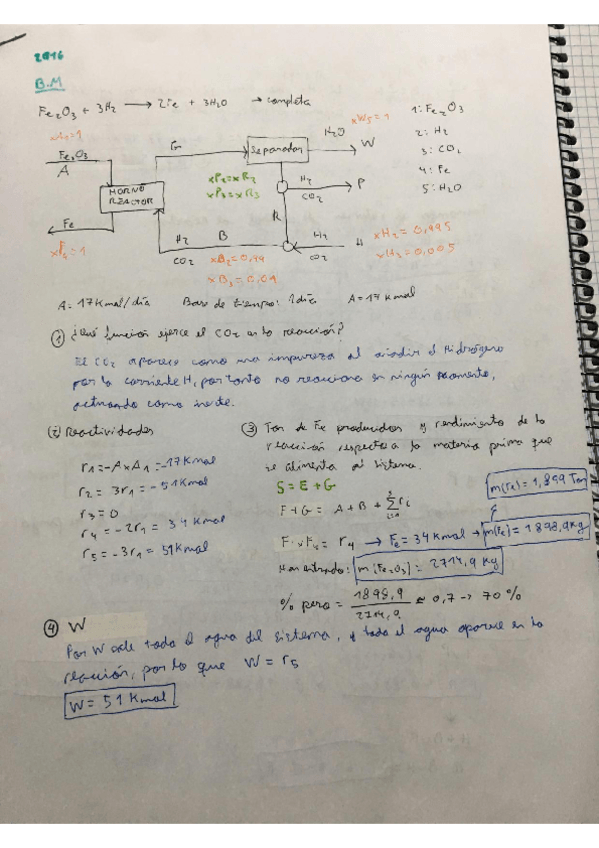 2016
B.M
Fe₂O₃ + 3H₂ → 2Fe + 3H₂O → completa
xA₁=1
Fe₂O₃
A
HORNO REACTOR
Fe
xF₄=1
G
Separador
H₂O
xW₅=1
W
xP₂=xR₂
xP₃=xR₃
H₂
CO₂
P
R
H₂
CO₂
B
xB₂=0,99
xB₃=0,01
H₂
CO₂
H
xH₂=0,995
xH₃=0,005
1: Fe₂O₃
2: H₂
3: CO₂
4: Fe
5: H₂O
A=17Kmol/día Base de tiempo: 1día A=17Kmol
① ¿Qué función ejerce el CO₂ en la reacción?
El CO₂ aparece como una impureza al añadir el Hidrógeno
por la corriente H, por tanto no reacciona en ningún momento,
actuando como inerte.
② Reactividades
r₁=-A×A₁=-17Kmol
r₂= 3r₁=-51Kmol
r₃=0
r₄=-2r₁= 34Kmol
r₅=-3r₁= 51Kmol
③ Ton de Fe producidas y rendimiento de la
reacción respecto a la materia prima que
se alimenta al sistema.
S=E+G
F+G= A+B+Σrᵢ
F·xF₄= r₄ → Fe=34Kmol → m(Fe)=1898,9Kg
m(Fe)=1,899 Ton
Han entrado: m(Fe₂O₃)=2714,9 Kg
% peso = 1898,9/2714,9 ≈ 0,7 → 70%
④ W
Por W sale toda el agua del sistema, y toda el agua aparece en la
reacción, por lo que W=r₅
W=51Kmol